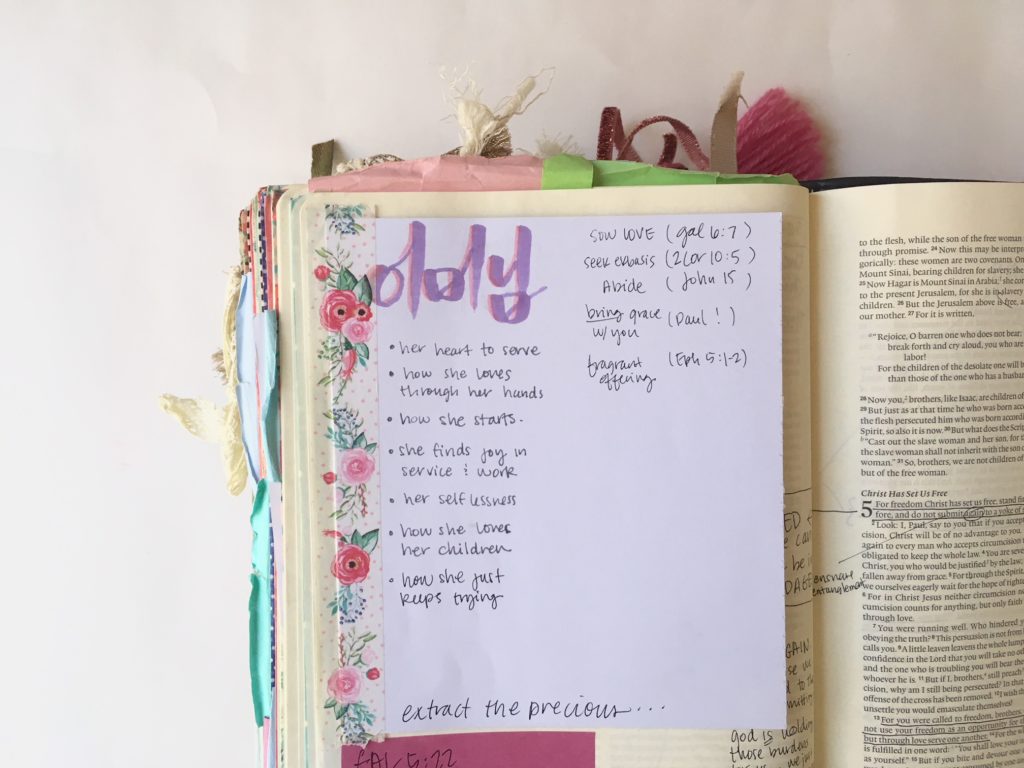 • her heart to serve
• how she loves
through her hands
• how she starts.
• she finds joy in
service & work
• her selflessness
• how she loves
her children
• how she just
keeps trying
extract the precious...
sow LOVE (gal 6:7)
seek (2 Cor 10:5)
Abide (John 15)
bring grace (Paul!)
w/ you
fragrant (Eph 5:1-2)
offering
GAL 5:22
god is
those burdens
ensnare
entanglement
to the flesh, while the son of the free woman
through promise. 24 Now this may be interp
gorically: these women are two covenants. On
Mount Sinai, bearing children for slavery; she
25 Now Hagar is Mount Sinai in Arabia; she cor
to the present Jerusalem, for she is in slavery
children. 26 But the Jerusalem above is free, a
our mother. 27 For it is written,
“Rejoice, O barren one who does not bear;
break forth and cry aloud, you who are
labor!
For the children of the desolate one will b
than those of the one who has a husban
28 Now you, brothers, like Isaac, are children of
29 But just as at that time he who was born acco
the flesh persecuted him who was born accord
Spirit, so also it is now. 30 But what does the Scrip
“Cast out the slave woman and her son, for t
the slave woman shall not inherit with the son o
woman.” 31 So, brothers, we are not children of
but of the free woman.
Christ Has Set Us Free
5 For freedom Christ has set us free; stand fir
fore, and do not submit again to a yoke of
2 Look: I, Paul, say to you that if you accept
cision, Christ will be of no advantage to you.
again to every man who accepts circumcision
obligated to keep the whole law. 4 You are seve
Christ, you who would be justified by the law;
fallen away from grace. 5 For through the Spirit,
we ourselves eagerly wait for the hope of righ
6 For in Christ Jesus neither circumcision no
cumcision counts for anything, but only faith
through love.
7 You were running well. Who hindered y
obeying the truth? 8 This persuasion is not from
calls you. 9 A little leaven leavens the whole lump
confidence in the Lord that you will take no oth
and the one who is troubling you will bear the
whoever he is. 11 But if I, brothers, still preach
cision, why am I still being persecuted? In that
offense of the cross has been removed. 12 I wish t
unsettle you would emasculate themselves!
13 For you were called to freedom, brothers.
not use your freedom as an opportunity for t
but through love serve one another. 14 For the w
is fulfilled in one word: “You shall love your
as yourself.” 15 But if you bite and devour one